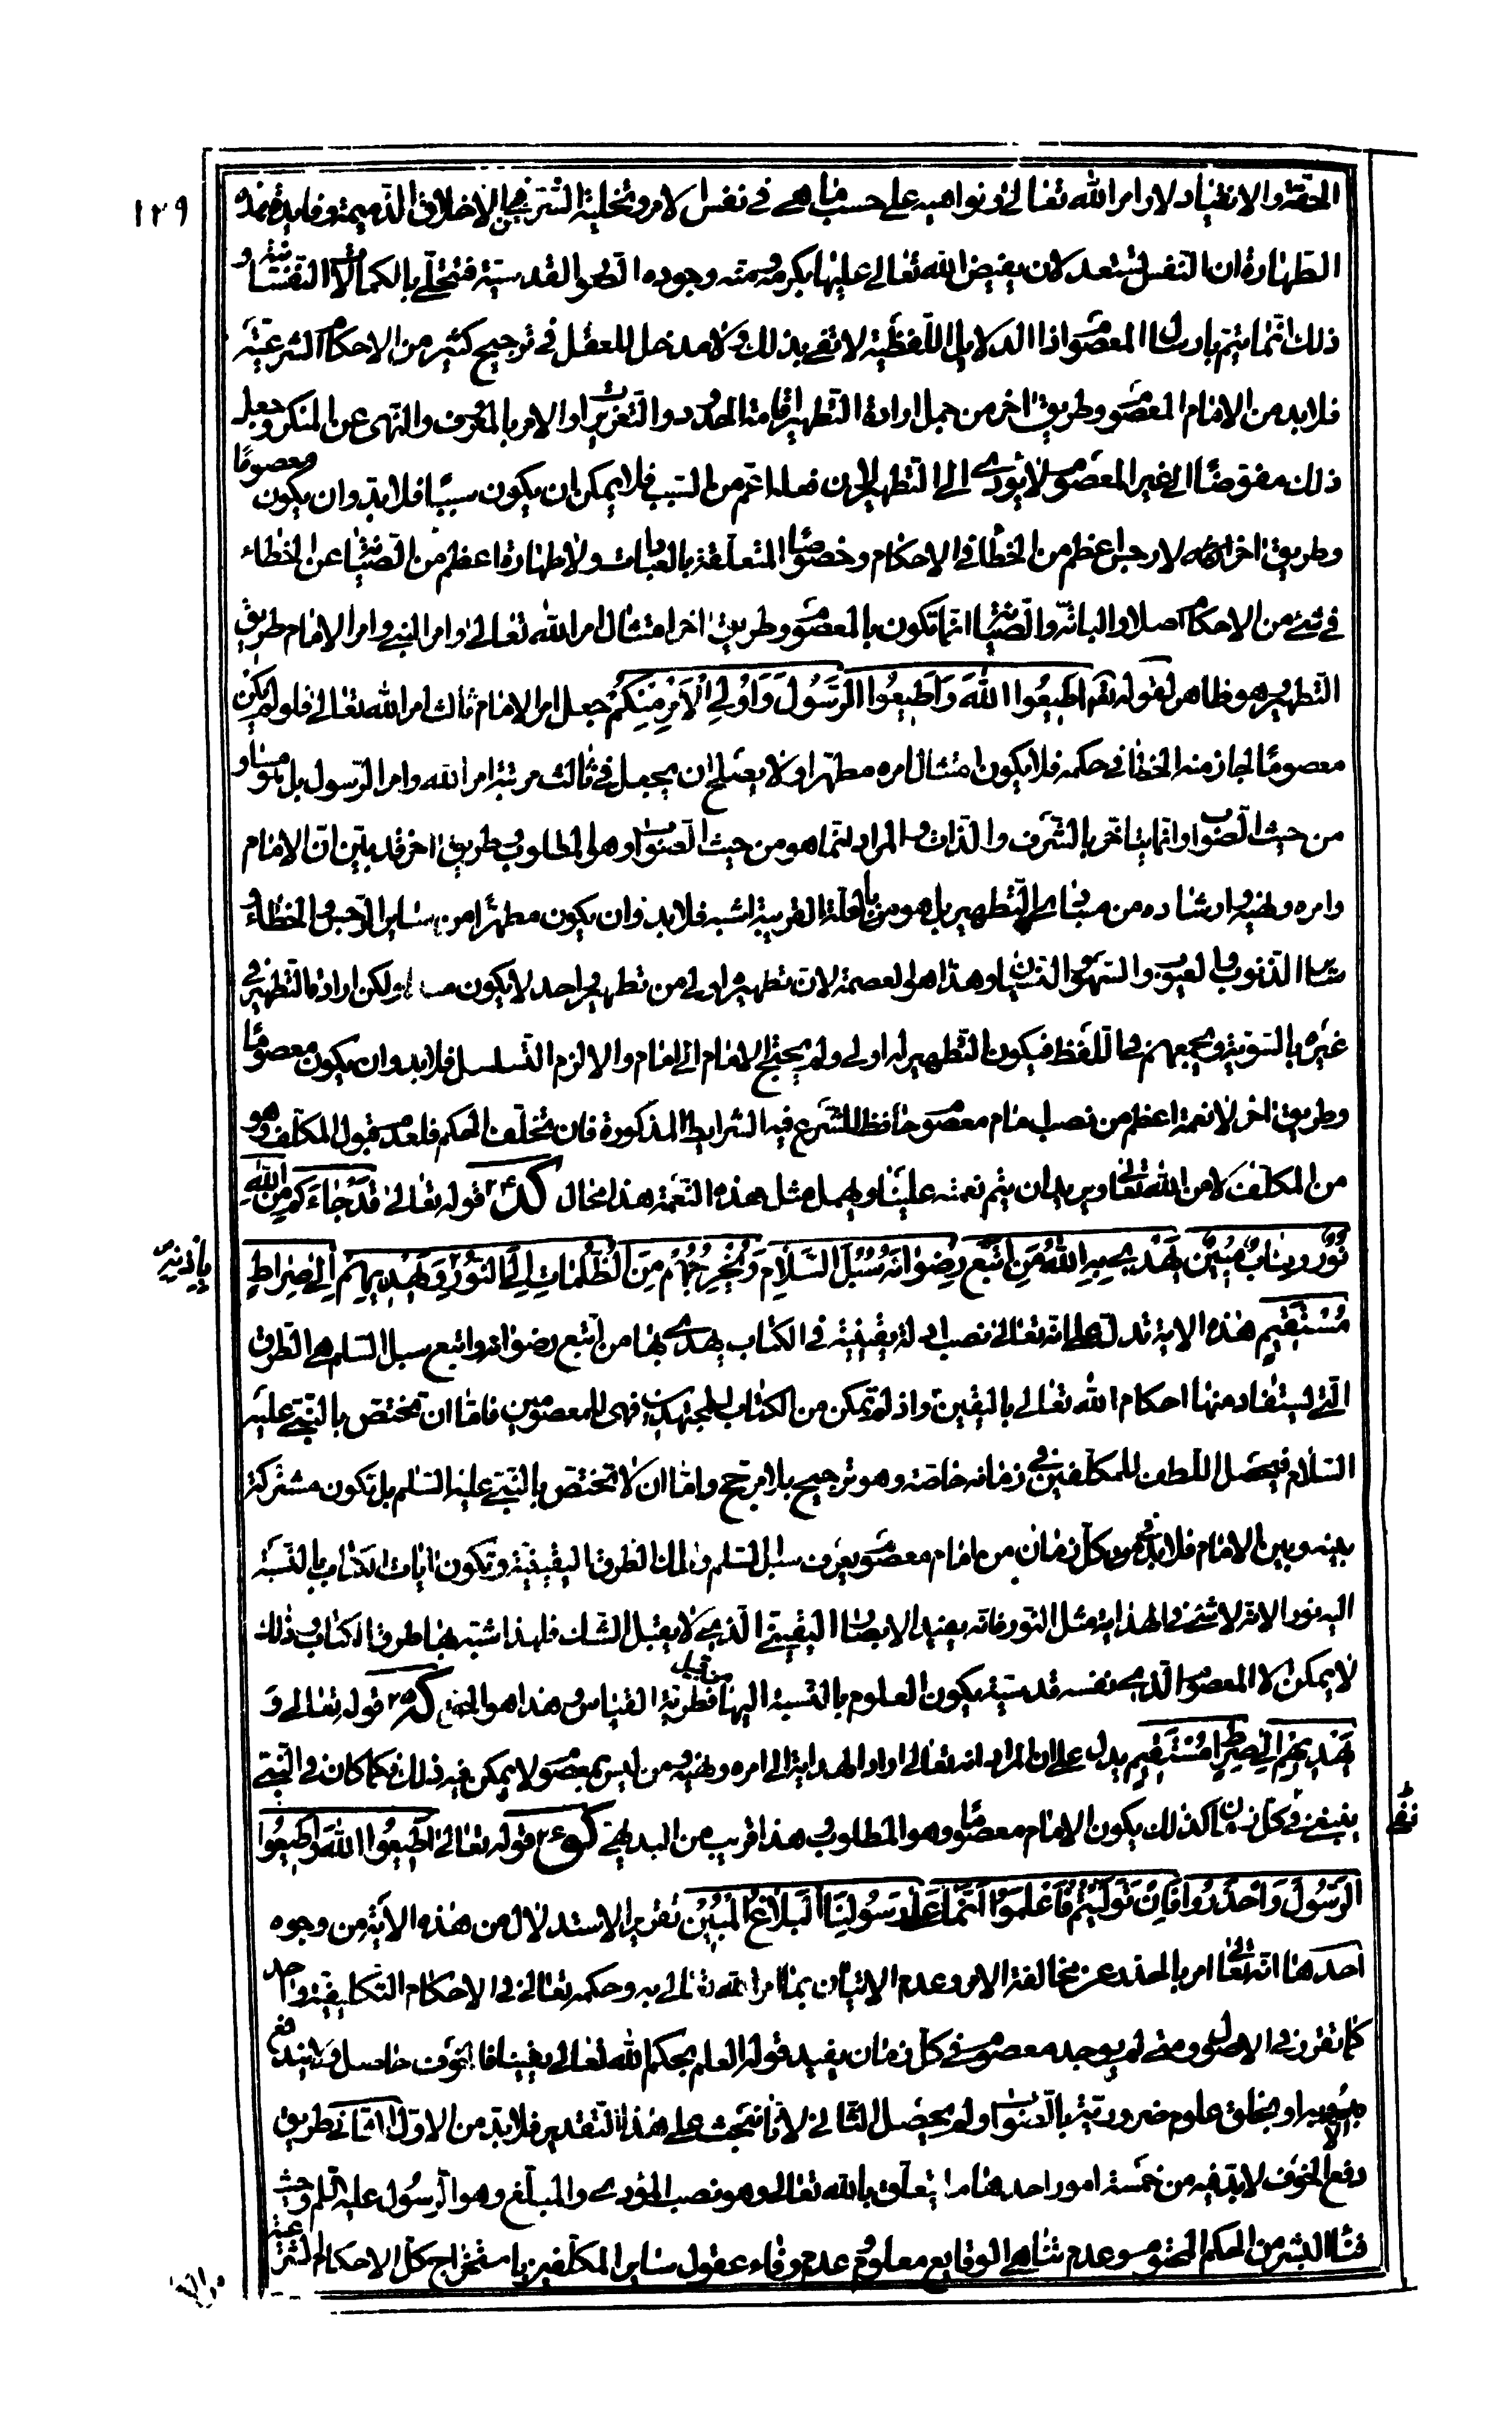 ١٢٩
الحقة والانقياد لاوامر الله تعالى ونواهيه على حسب ما هى فى نفس الامر وتخلية السر عن الاخلاق الذميمة وفايدة هذه
الطهارة ان النفس تستعد لان يفيض الله تعالى عليها بكرمه ومنه وجوده القدسية فتتحلى بالكمالات النفسانية و
ذلك انما يتم بارسال المعصوم اذ الدلايل اللفظية لا تفى بذلك ولا مدخل للعقل فى ترجيح كثير من الاحكام الشرعية
فلا بد من الامام المعصوم وطريق اخر من جمل ارادة التطهير اقامة الحدود والتعزيرات والامر بالمعروف والنهى عن المنكر وجعل
ذلك مفوضا الى غير المعصوم لا يؤدى الى التطهير من السبب فلا يمكن ان يكون سببا فلا بد وان يكون معصوما
وطريق اخر لا رجس اعظم من الخطأ فى الاحكام وخصوصا المتعلقة بالعبادات ولا طهارة اعظم من الصيانة عن الخطاء
فى شئ من الاحكام اصلا والبتة والصيانة انما تكون بالمعصوم وطريق اخر امتثال امر الله تعالى وامر النبى وامر الامام طريق
التطهير وهو ظاهر لقوله تعالى اَطِيعُوا اللهَ وَاَطِيعُوا الرَّسُولَ وَاُولِى الْاَمْرِ مِنْكُمْ جعل امر الامام ثالث امر الله تعالى فلو لم يكن
معصوما لجاز منه الخطأ فى حكمه فلا يكون امتثال امره مطهرا ولا يصلح ان يجعل فى ثالث مرتبة امر الله وامر الرسول بل هو مساو
من حيث الصواب وانما يتاخر بالشرف والذات والمراد انما هو من حيث الصواب وهو المطلوب وطريق اخر قد بين ان الامام
وامره ونهيه وارشاده من مبادى التطهير بل هو من باب العلة القريبة اشبه فلا بد وان يكون مطهرا من ساير الرجس والخطاء و
ساير الذنوب والعيوب والسهو والنسيان وهذا هو العصمة لان تطهيره اولى من تطهير واحد لا يكون ولكن ارادة التطهير فى
غيره بالسوية ويجمعهم فى اللفظ فيكون التطهير له اولى ولم يحتج الامام الى امام والا لزم التسلسل فلا بد وان يكون معصوما
وطريق اخر لا نعمة اعظم من نصب امام معصوم حافظ للشرع فيه الشرايط المذكورة فان تخلف الحكم فلعدم قبول المكلف وهو
من المكلف لا من الله تعالى ويريد ان يتم نعمته علينا ويهمل مثل هذه النعمة هذا محال كد قوله تعالى قَدْ جَاءَكُمْ مِنَ اللهِ
نُورٌ وكِتَابٌ مُبِينٌ يَهْدِى بِهِ اللهُ مَنِ اتَّبَعَ رِضْوَانَهُ سُبُلَ السَّلَامِ وَيُخْرِجُهُمْ مِنَ الظُّلُمَاتِ اِلَى النُّورِ وَيَهْدِيهِمْ اِلَى صِرَاطٍ
باذنه
مُسْتَقِيمٍ هذه الاية تدل على انه تعالى نصب ادلة يقينية فى الكتاب يهدى بها من اتبع رضوانه واتبع سبل السلم هى الطرق
التى يستفاد منها احكام الله تعالى باليقين واذ لم يتمكن من الكتاب للمجتهدين فهى للمعصومين فاما ان تختص بالنبى عليه
السلام فيحصل اللطف للمكلفين فى زمانه خاصة وهو ترجيح بلا مرجح واما ان لا تختص بالنبى عليه السلم بل تكون مشتركة
بينه وبين الامام فلا بد فى كل زمان من امام معصوم يعرف سبل السلم وتلك الطرق اليقينية وتكون ايات الكتاب بالنسبة
اليه نورا لانه لا شئ فى الهداية مثل النور فانه يفيد الابصار اليقينى الذى لا يقبل الشك فلهذا شبه بها طرق الكتاب وذلك
لا يمكن الا المعصوم الذى نفسه قدسية يكون العلوم بالنسبة اليها من قبيل فطرية القياس وهذا هو الحق كه قوله تعالى وَ
يَهْدِيهِمْ اِلَى صِرَاطٍ مُسْتَقِيمٍ يدل على ان المراد انه تعالى اراد الهداية الى امره ونهيه ومن ليس بمعصوم لا يمكن فيه ذلك فكما كان فى النبى
ينبغى فى كل زمان كذلك يكون الامام معصوما وهو المطلوب وهذا قريب من البديهى كو قوله تعالى اَطِيعُوا اللهَ وَاَطِيعُوا
الرَّسُولَ وَاحْذَرُوا فَاِنْ تَوَلَّيْتُمْ فَاعْلَمُوا اَنَّمَا عَلَى رَسُولِنَا الْبَلَاغُ الْمُبِينُ تقرير الاستدلال من هذه الاية من وجوه
احدها انه تعالى امر بالحذر عن مخالفة الامر وعدم الاتيان بما امر الله تعالى به وحكمه تعالى فى الاحكام التكليفية واحد
كما تقرر فى الاصول ومتى لم يوجد معصوم فى كل زمان يفيد قوله العلم بحكم الله تعالى يقينا فالخوف حاصل ولا يندفع
الا به او بخلق علوم ضرورية بالصواب ولم يحصل الثانى لانا نبحث على هذا التقدير فلا بد من الاول الثانى طريق
دفع الخوف لا بد فيه من خمسة امور احدها ما يتعلق بالله تعالى وهو نصب المؤدى والمبلغ وهو الرسول عليه السلم وحيث
فناء البشر من الحكم المحتوم وعدم تناهى الوقايع معلوم وعدم وفاء عقول ساير المكلفين باستخراج كل الاحكام الشرعية